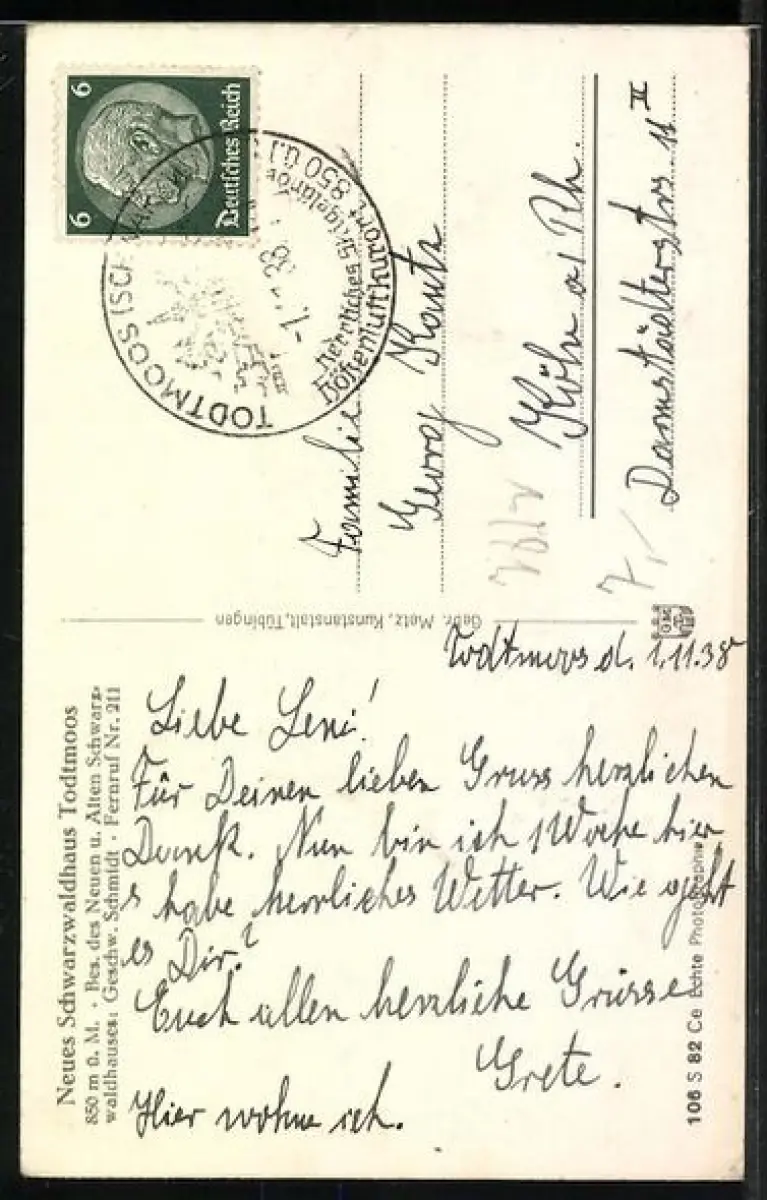 Neues Schwarzwaldhaus Todtmoos
850 m ü. M. · Bes. des Neuen u. Alten Schwarz-
waldhauses: Geschw. Schmidt · Fernruf Nr. 211
Todtmoos d. 1.11.38
Liebe Leni!
Für Deinen lieben Gruss herzlichen
Dank. Nun bin ich 1 Woche hier
habe herrliches Wetter. Wie geht
es Dir?
Euch allen herzliche Grüsse
Grete.
Hier wohne ich.
106 S 82 Ce Echte Photographie
Gebr. Metz, Kunstanstalt, Tübingen
6 6
Deutsches Reich
TODTMOOS (SCHWARZW
38
Herrliches Skigelände
Höhenluftkurort 850 ü.
Familie
Georg Kautz
Köln a/Rh.
Darmstädterstrs 11 II
7,